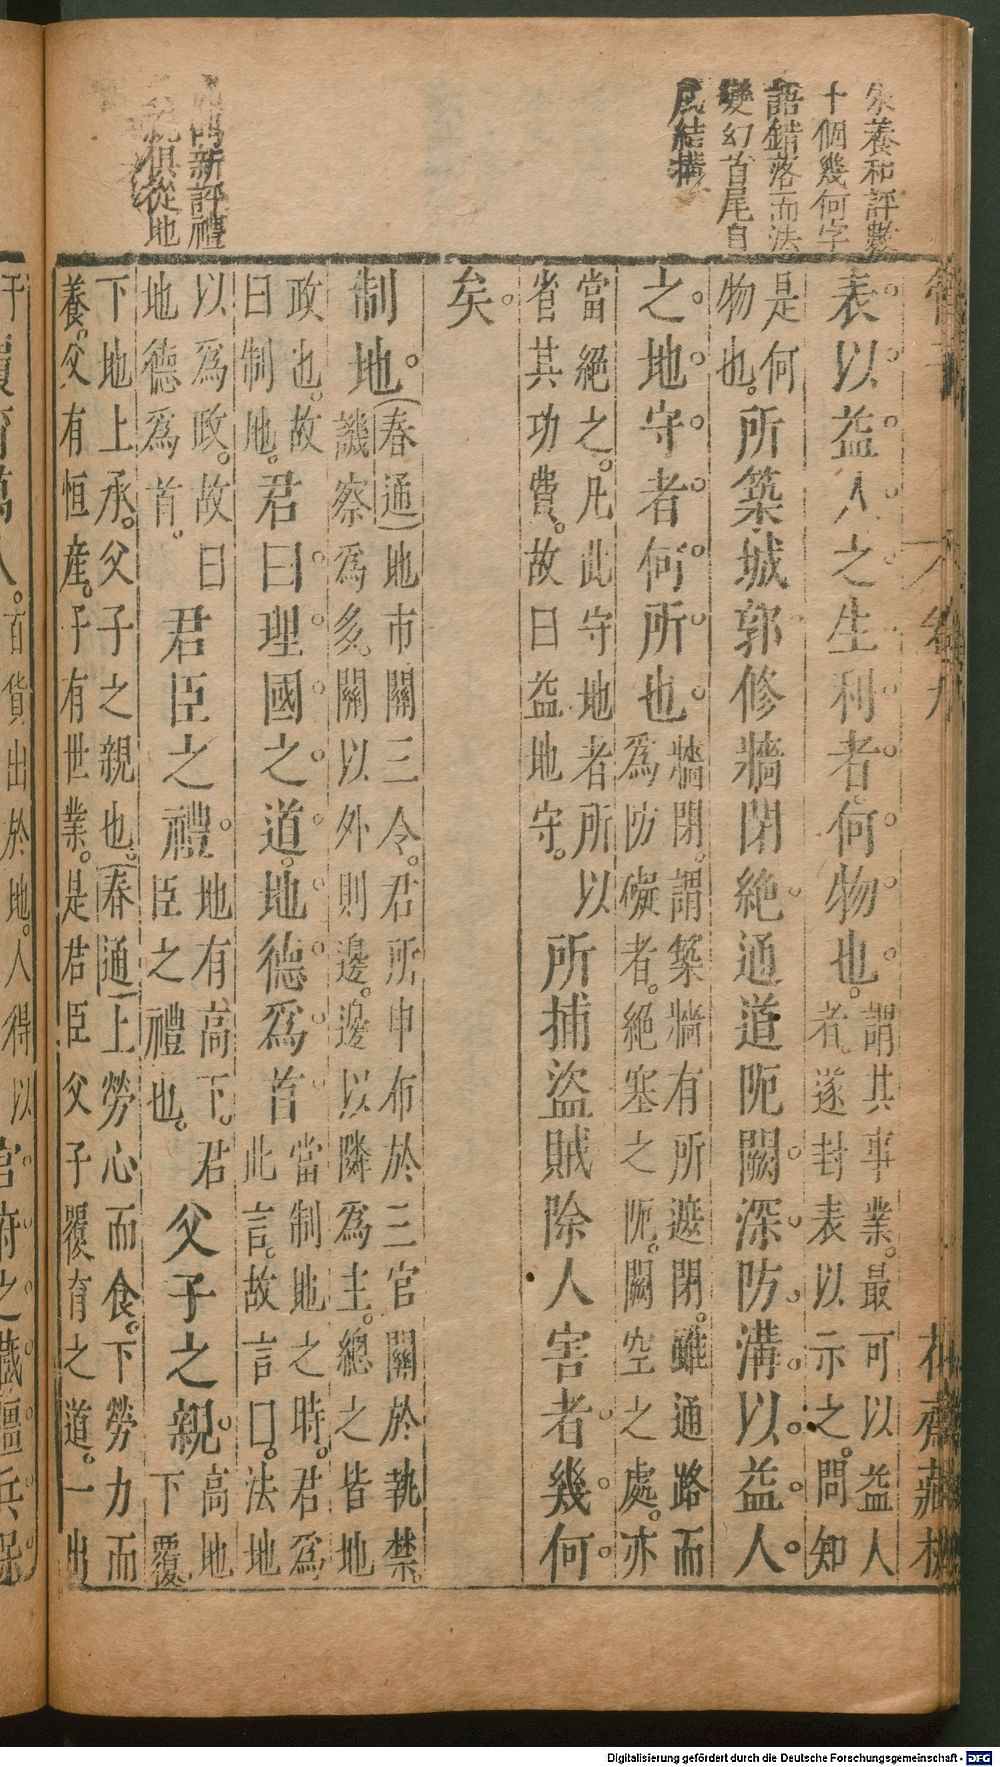 朱養和評數
十個幾何字
語錯落而法
變幻首尾自
成結搆
新評禮
俱從地
表以益人之生利者何物也謂其事業最可以益人
者遂封表以示之問知
是何
物也所築城郭修牆閉絕通道阨闕深防溝以益人
之地守者何所也牆閉謂築牆有所遮閉雖通路而
為防礙者絕塞之阨闕空之處亦
當絕之凡此守地者所以
省其功費故曰益地守所捕盜賊除人害者幾何
矣
制地春通地市關三令君所申布於三官關於執禁
譏察為多關以外則邊邊以隣為主總之皆地
政也故
曰制地君曰理國之道地德為首當制地之時君為
此言故言曰法地
以為政故曰
地德為首君臣之禮地有高下君
臣之禮也父子之親高地
下覆
下地上承父子之親也春通上勞心而食下勞力而
養父有恒產子有世業是君臣父子覆育之道一出
百貨出於地人得以官府之藏彊兵保
Digitalisierung gefördert durch die Deutsche Forschungsgemeinschaft - DFG